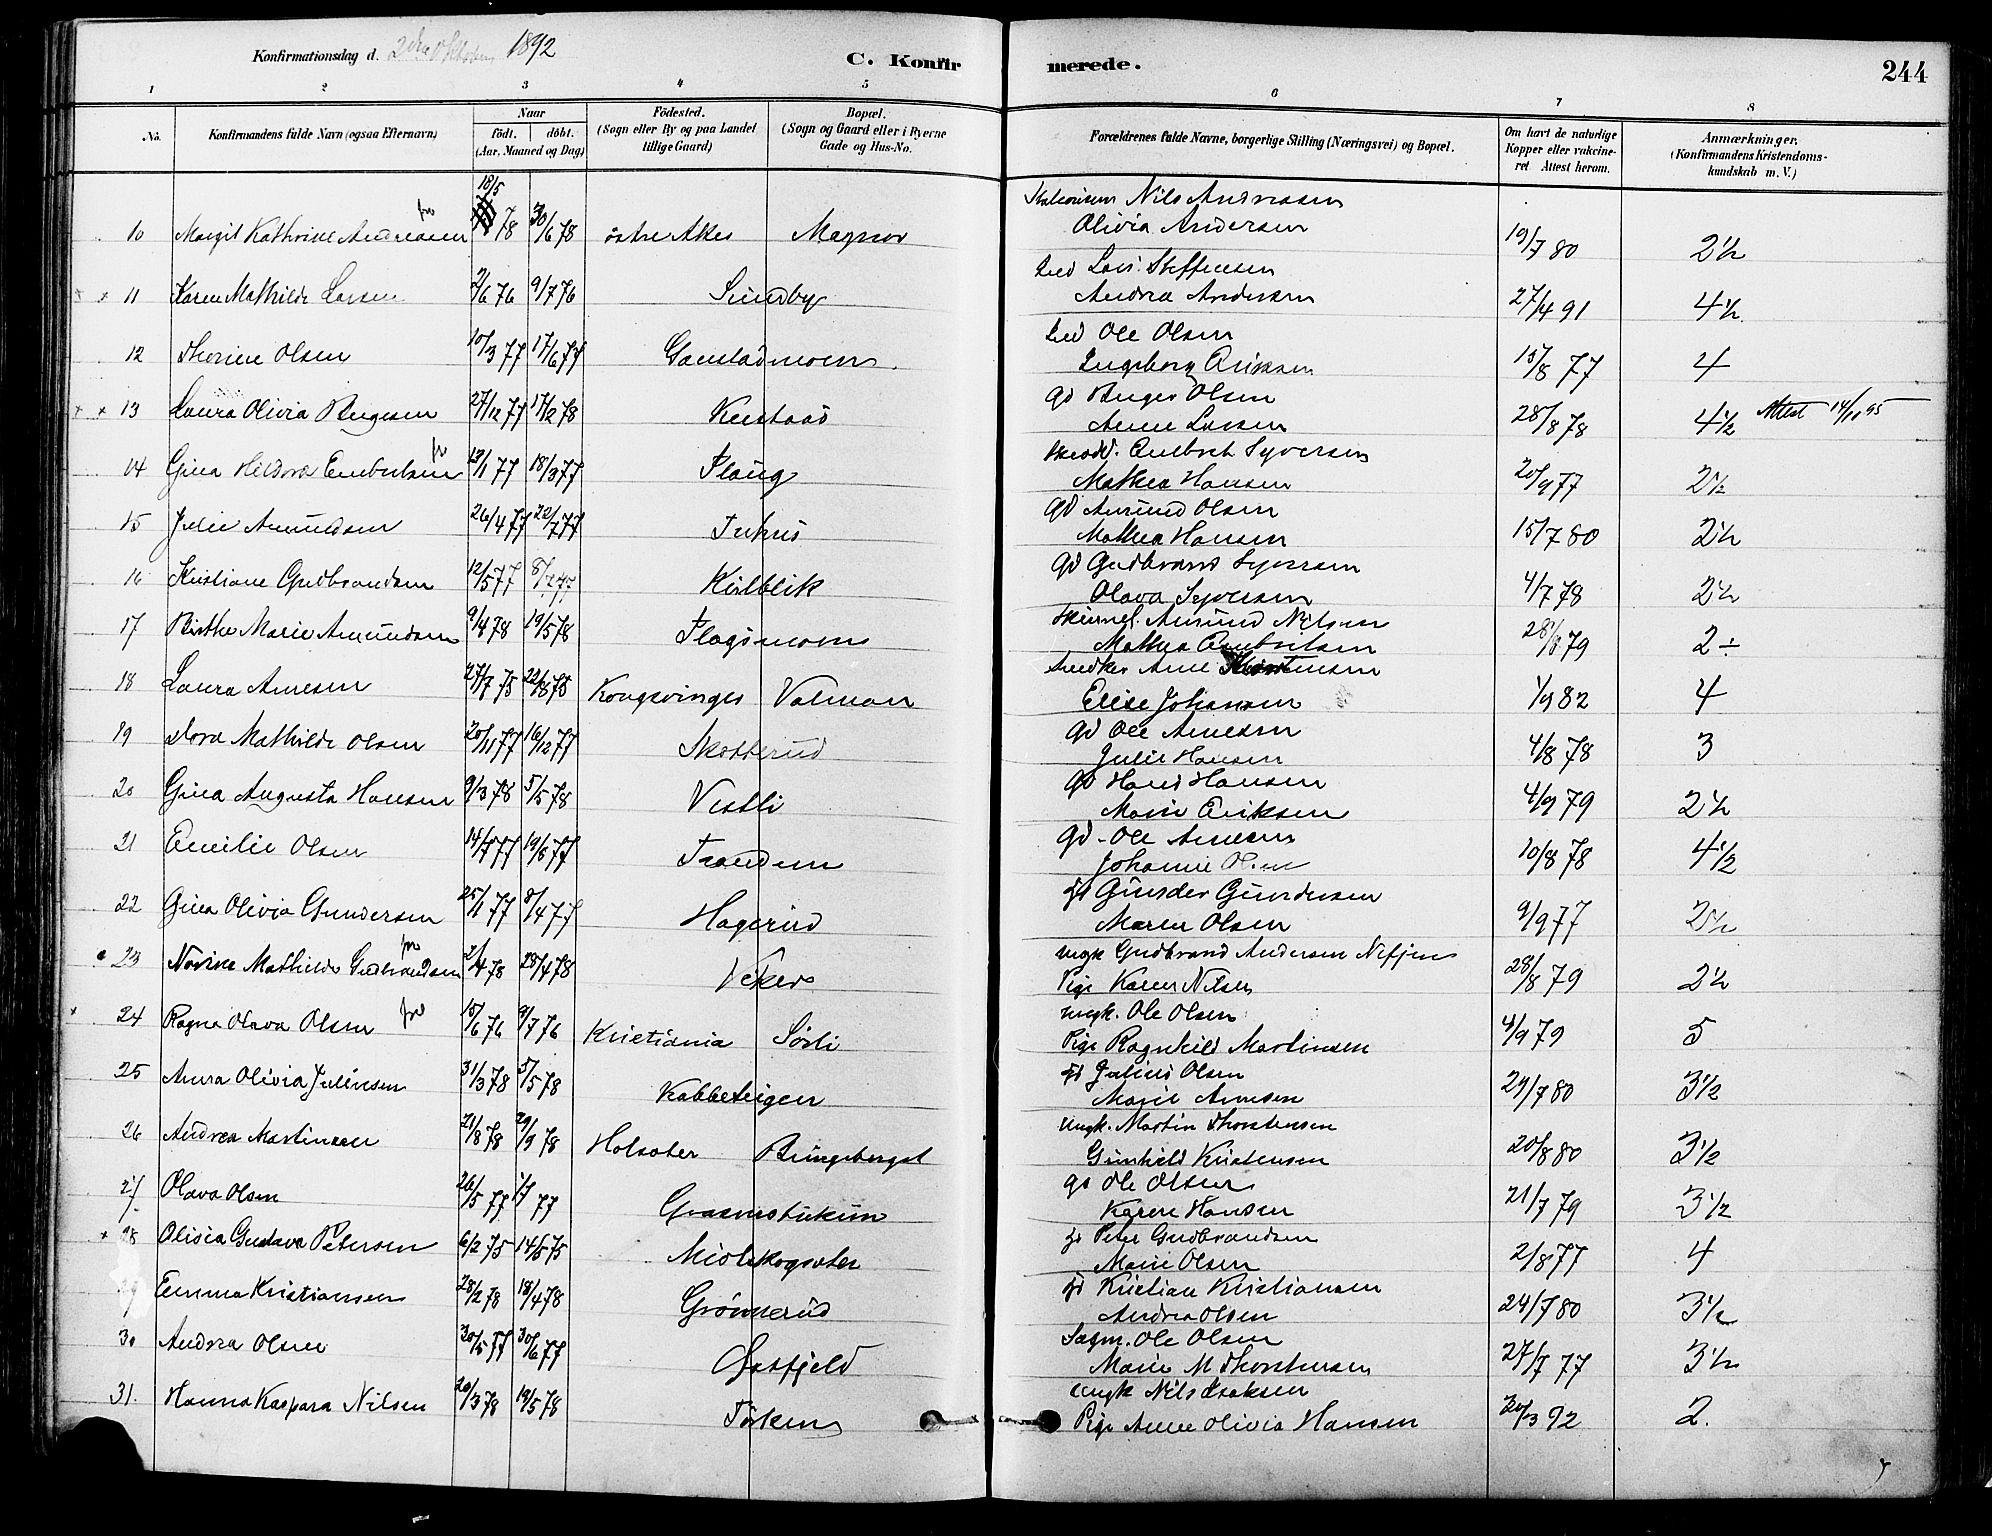 Konfirmationsdag d. 2den Oktober 1892
C. Konfirmerede.
244
1 2 3 4 5 6 7 8
No.
Konfirmandens fulde Navn (ogsaa Efternavn)
Naar födt. döbt. (Aar, Maaned og Dag)
Födested. (Sogn eller By og paa Landet tillige Gaard)
Bopæl. (Sogn og Gaard eller i Byerne Gade og Hus-No.
Forældrenes fulde Navne, borgerlige Stilling (Næringsvei) og Bopæl.
Om havt de naturlige Kopper eller vakcineret Attest herom.
Anmærkninger. (Konfirmandens Kristendomskundskab m. V.)
10 Margit Kathrine Andreasen fri 18/5 78 30/6 78 östre Aker Magnor Nils Andreasen Olivia Andersen 19/7 80 2½
11 Karen Mathilde Larsen 2/6 76 9/7 76 Sundby Lars Steffensen Andrea Andersen 27/4 91 4½
12 Thorine Olsen 10/3 77 17/6 77 Gaustadmoen Ole Olsen Ingeborg Eriksen 15/8 77 4
13 Laura Olivia Bergesen 27/12 77 17/2 78 Berger Olsen Anne Larsen 28/8 78 4½ Attest 14/11 95
14 Gina Hildora Embretsen 13/1 77 18/3 77 Embret Syversen Mathea Hansen 20/9 77 2½
15 Julie Amundsen 26/4 77 22/7 77 Gd Amund Olsen Mathea Hansen 15/7 80 2½
16 Kristiane Gudbrandsen 12/5 77 Kirlblik Gd Gudbrand Syversen Olava Syversen 4/7 78 2½
17 Birthe Marie Amundsen 9/4 78 19/5 78 Amund Nilsen Mathea Embretsen 28/8 79 2÷
18 Laura Arnesen 27/7 75 22/8 75 Kongsvinger Valmoen Arne Elise Johansen 1/9 82 4
19 Dora Mathilde Olsen 20/11 77 16/12 77 Skotterud Gd Ole Arnesen Julie Hansen 4/8 78 3
20 Gina Augusta Hansen 9/3 78 5/5 78 Vestli Gd Hans Hansen Marie Eriksen 4/9 79 2½
21 Emilie Olsen 14/7 77 19/8 77 Trandem Gd. Ole Arnesen Johanne Olsen 10/8 78 4½
22 Gina Olivia Gundersen 25/1 77 8/4 77 Hagerud Gunder Gundersen Maren Olsen 9/9 77 2½
23 Norine Mathilde Gudbrandsen 2/4 78 28/4 78 Veker ungk Gudbrand Andersen Pige Karen Nilsen 28/8 79 2½
24 Ragna Olava Olsen 15/6 76 9/7 76 Kristiania Sørli ungk. Ole Olsen Pige Ragnhild Martinsen 4/9 79 5
25 Anna Olivia Julinsen 31/3 78 5/5 78 Kabbeteigen Julius Olsen Marie Arnesen 29/7 80 3½
26 Andrea Martinsen 21/8 78 29/9 78 Holsæter Bungeberget Ungk. Martin Thorstensen Gunhild Kristensen 20/8 80 3½
27 Olava Olsen 26/5 77 1/7 77 Gd Ole Olsen Karen Hansen 21/7 79 3½
28 Olisia Gustava Petersen 6/2 75 14/5 75 Peter Gudbrandsen Marie Olsen 2/8 77 4
29 Emma Kristiansen 28/2 78 18/4 78 Grönnerud Kristian Kristiansen Andrea Olsen 24/7 80 3½
30 Andrea Olsen 20/5 77 30/6 77 Sagm. Ole Olsen Marie M Thorstensen 27/7 77 3½
31. Hanna Kaspara Nilsen 20/3 78 19/5 78 Törken ungk Nils Isaksen Pige Anne Olivia Hansen 20/3 92 2.